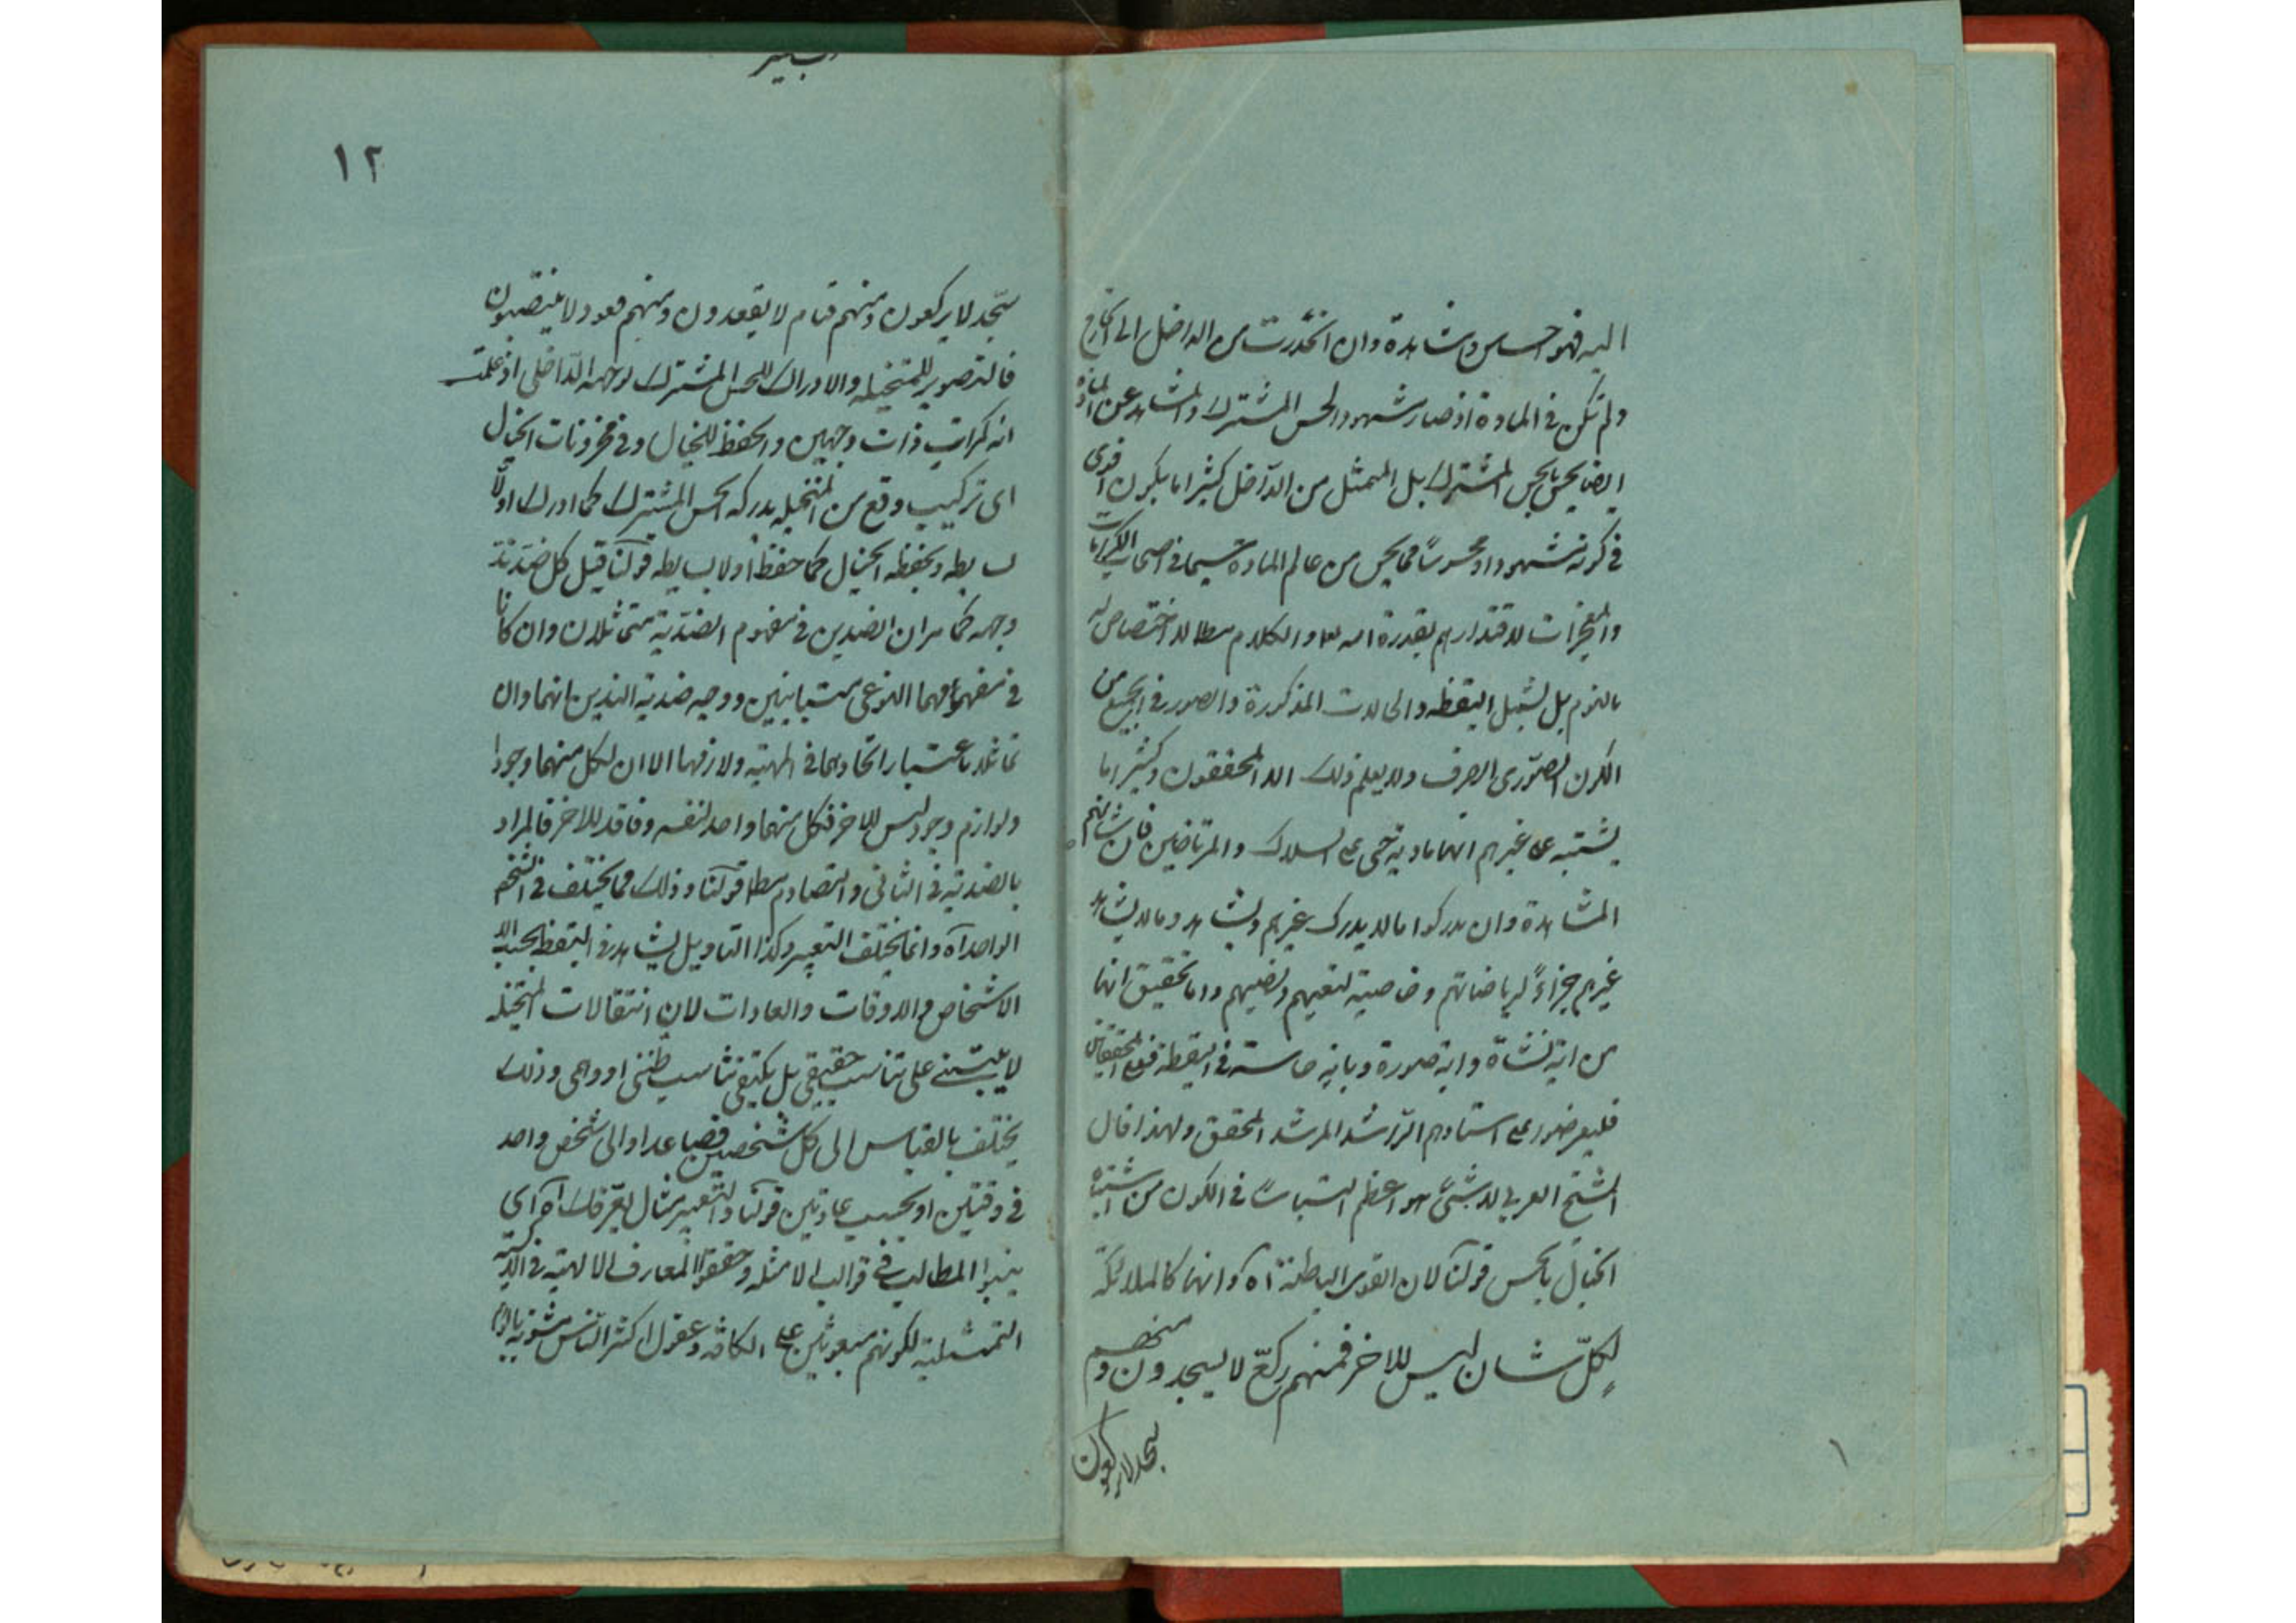 اليه فهو احساس ومشاهدة وان انحدرت من الداخل الى الخارج
ولم تكن في المادة اذ صار مشهود الحس المشترك والمشاهد عن المادة
ايضا يحس بالحس المشترك بل المتمثل من الداخل كثيرا ما يكون اقوى
في كونه مشهودا ومحسوسا مما يحس من عالم المادة سيما في اصحاب الكرامات
والمعجزات لاقتدارهم بقدرة الله والكلام مطا لا اختصاص له
بالنوم بل يشمل اليقظه والحالات المذكورة والصور في الجميع من
الكون الصوّرى الصرف ولا يعلم ذلك الا المحققون وكثيرا ما
يشتبه على غيرهم انها مادية حتى على السلاك والمرتاضين فان شانهم
المشاهدة وان يدركوا ما لا يدرك غيرهم ويشاهدوا ما لا يشاهد
غيرهم جزاءً لرياضاتهم وخاصية لتعبهم ونصبهم واما تحقيق انها
من اية نشاة واية صورة وباية حاسة في اليقظة فمع المحققين
فليعرضوا على استادهم الراشد المرشد المحقق ولهذا قال
الشيخ العربي لا شئ هو اعظم التباسا في الكون من اشتباه
الخيال بالحس قولنا لان القوى الباطنة آه وانها كالملائكة
لكلّ شان ليس للاخر فمنهم ركّع لا يسجدون ومنهم
سجد لا يركعون
١٢
سجّد لا يركعون ومنهم قيام لا يقعدون ومنهم قعود لا ينتصبون
فالتصوير للمتخيله والادراك للحس المشترك لوجهه الداخلى اذ علمت
انه كمرات ذات وجهين والحفظ للخيال وفي مخزونات الخيال
اى تركيب وقع من المتخيله يدركه الحس المشترك كما ادرك اولا
بسايطه ويحفظه الخيال كما حفظ اولا بسايطه قولنا قيل كل ضد ند
وجهه كما مر ان الضدين في مفهوم الضدية متماثلان وان كانا
في مفهومهما النوعى متباينين ووجه ضدية الندين انهما وان
تماثلا باعتبار اتحادهما في المهية ولازمها الا ان لكل منهما وجودا
ولوازم وجود ليس للاخر فكل منهما واجد لنفسه وفاقد للاخر فالمراد
بالضدية في الثاني التصادم مطا قولنا وذلك مما يختلف في الشخص
الواحد آه وانما يختلف التعبير وكذا التاويل لمشاهد في اليقظه بحسب
الاشخاص والاوقات والعادات لان انتقالات المتخيله
لا يبتنى على تناسب حقيقى بل يكتفى بتناسب ظنى او وهمى وذلك
يختلف بالقياس الى كل شخصين فصاعدا والى شخص واحد
في وقتين او بحسب عادتين قولنا والتعبير مثال يعرفك آه اى
بينوا المطالب في قوالب الامثله وحققوا المعارف الالهيه في
التمثيلية لكونهم مبعوثين على الكافه وعقول اكثر الناس مشوبه